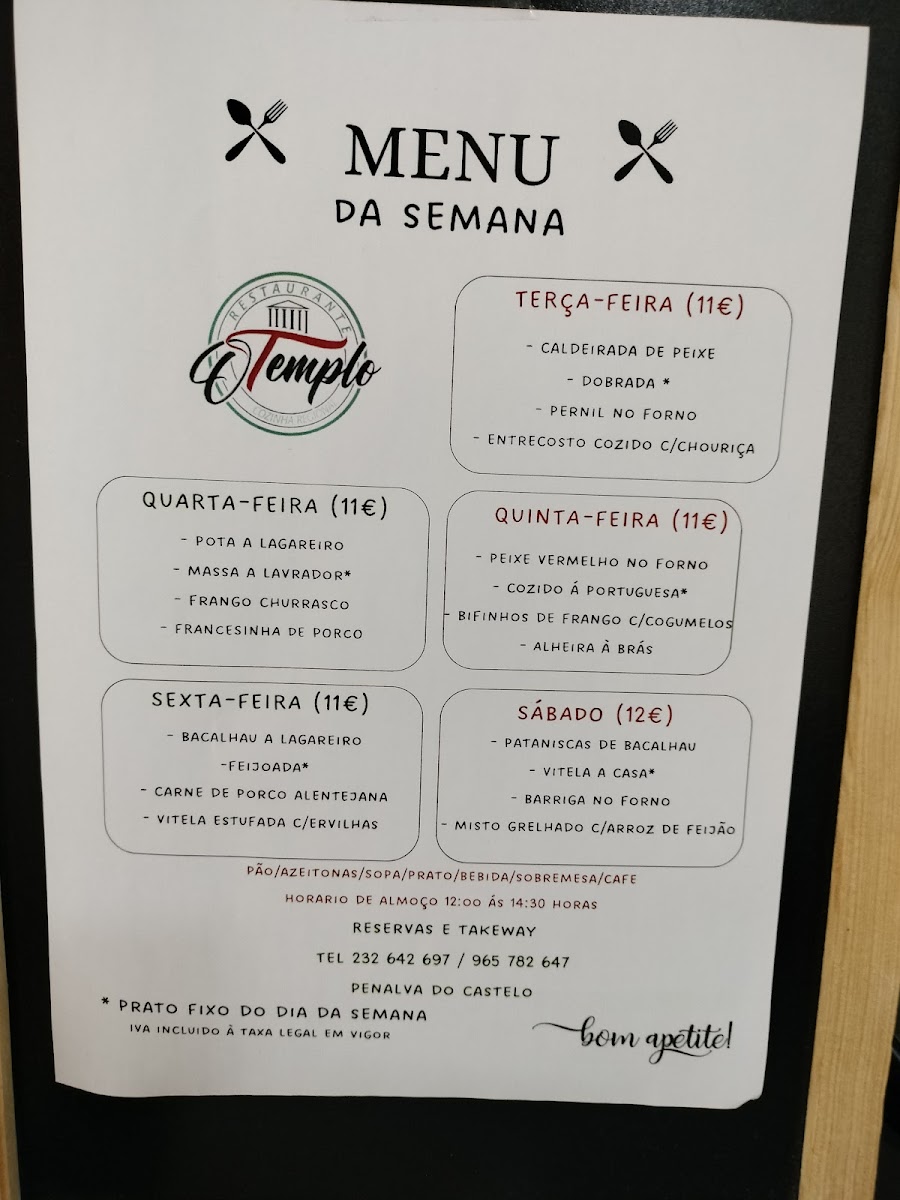 MENU
DA SEMANA
RESTAURANTE
O Templo
COZINHA REGIONAL
TERÇA-FEIRA (11€)
- CALDEIRADA DE PEIXE
- DOBRADA *
- PERNIL NO FORNO
- ENTRECOSTO COZIDO C/CHOURIÇA
QUARTA-FEIRA (11€)
- POTA A LAGAREIRO
- MASSA A LAVRADOR*
- FRANGO CHURRASCO
- FRANCESINHA DE PORCO
QUINTA-FEIRA (11€)
- PEIXE VERMELHO NO FORNO
- COZIDO Á PORTUGUESA*
- BIFINHOS DE FRANGO C/COGUMELOS
- ALHEIRA À BRÁS
SEXTA-FEIRA (11€)
- BACALHAU A LAGAREIRO
-FEIJOADA*
- CARNE DE PORCO ALENTEJANA
- VITELA ESTUFADA C/ERVILHAS
SÁBADO (12€)
- PATANISCAS DE BACALHAU
- VITELA A CASA*
- BARRIGA NO FORNO
- MISTO GRELHADO C/ARROZ DE FEIJÃO
PÃO/AZEITONAS/SOPA/PRATO/BEBIDA/SOBREMESA/CAFE
HORARIO DE ALMOÇO 12:00 ÁS 14:30 HORAS
RESERVAS E TAKEWAY
TEL 232 642 697 / 965 782 647
PENALVA DO CASTELO
* PRATO FIXO DO DIA DA SEMANA
IVA INCLUIDO À TAXA LEGAL EM VIGOR
bom apetite!